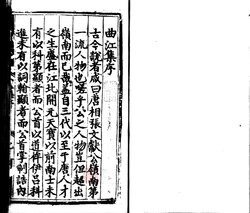 曲江集序
古今說者咸曰唐相張文獻公嶺南第
一流人物也嗟乎公之人物豈但超出
嶺南而已哉蓋自三代以至于唐人才
之生盛在江北開元天寶以前南士未
有以科第顯者而公首以道侔伊呂科
進未有以詞翰顯者而公首掌制誥內